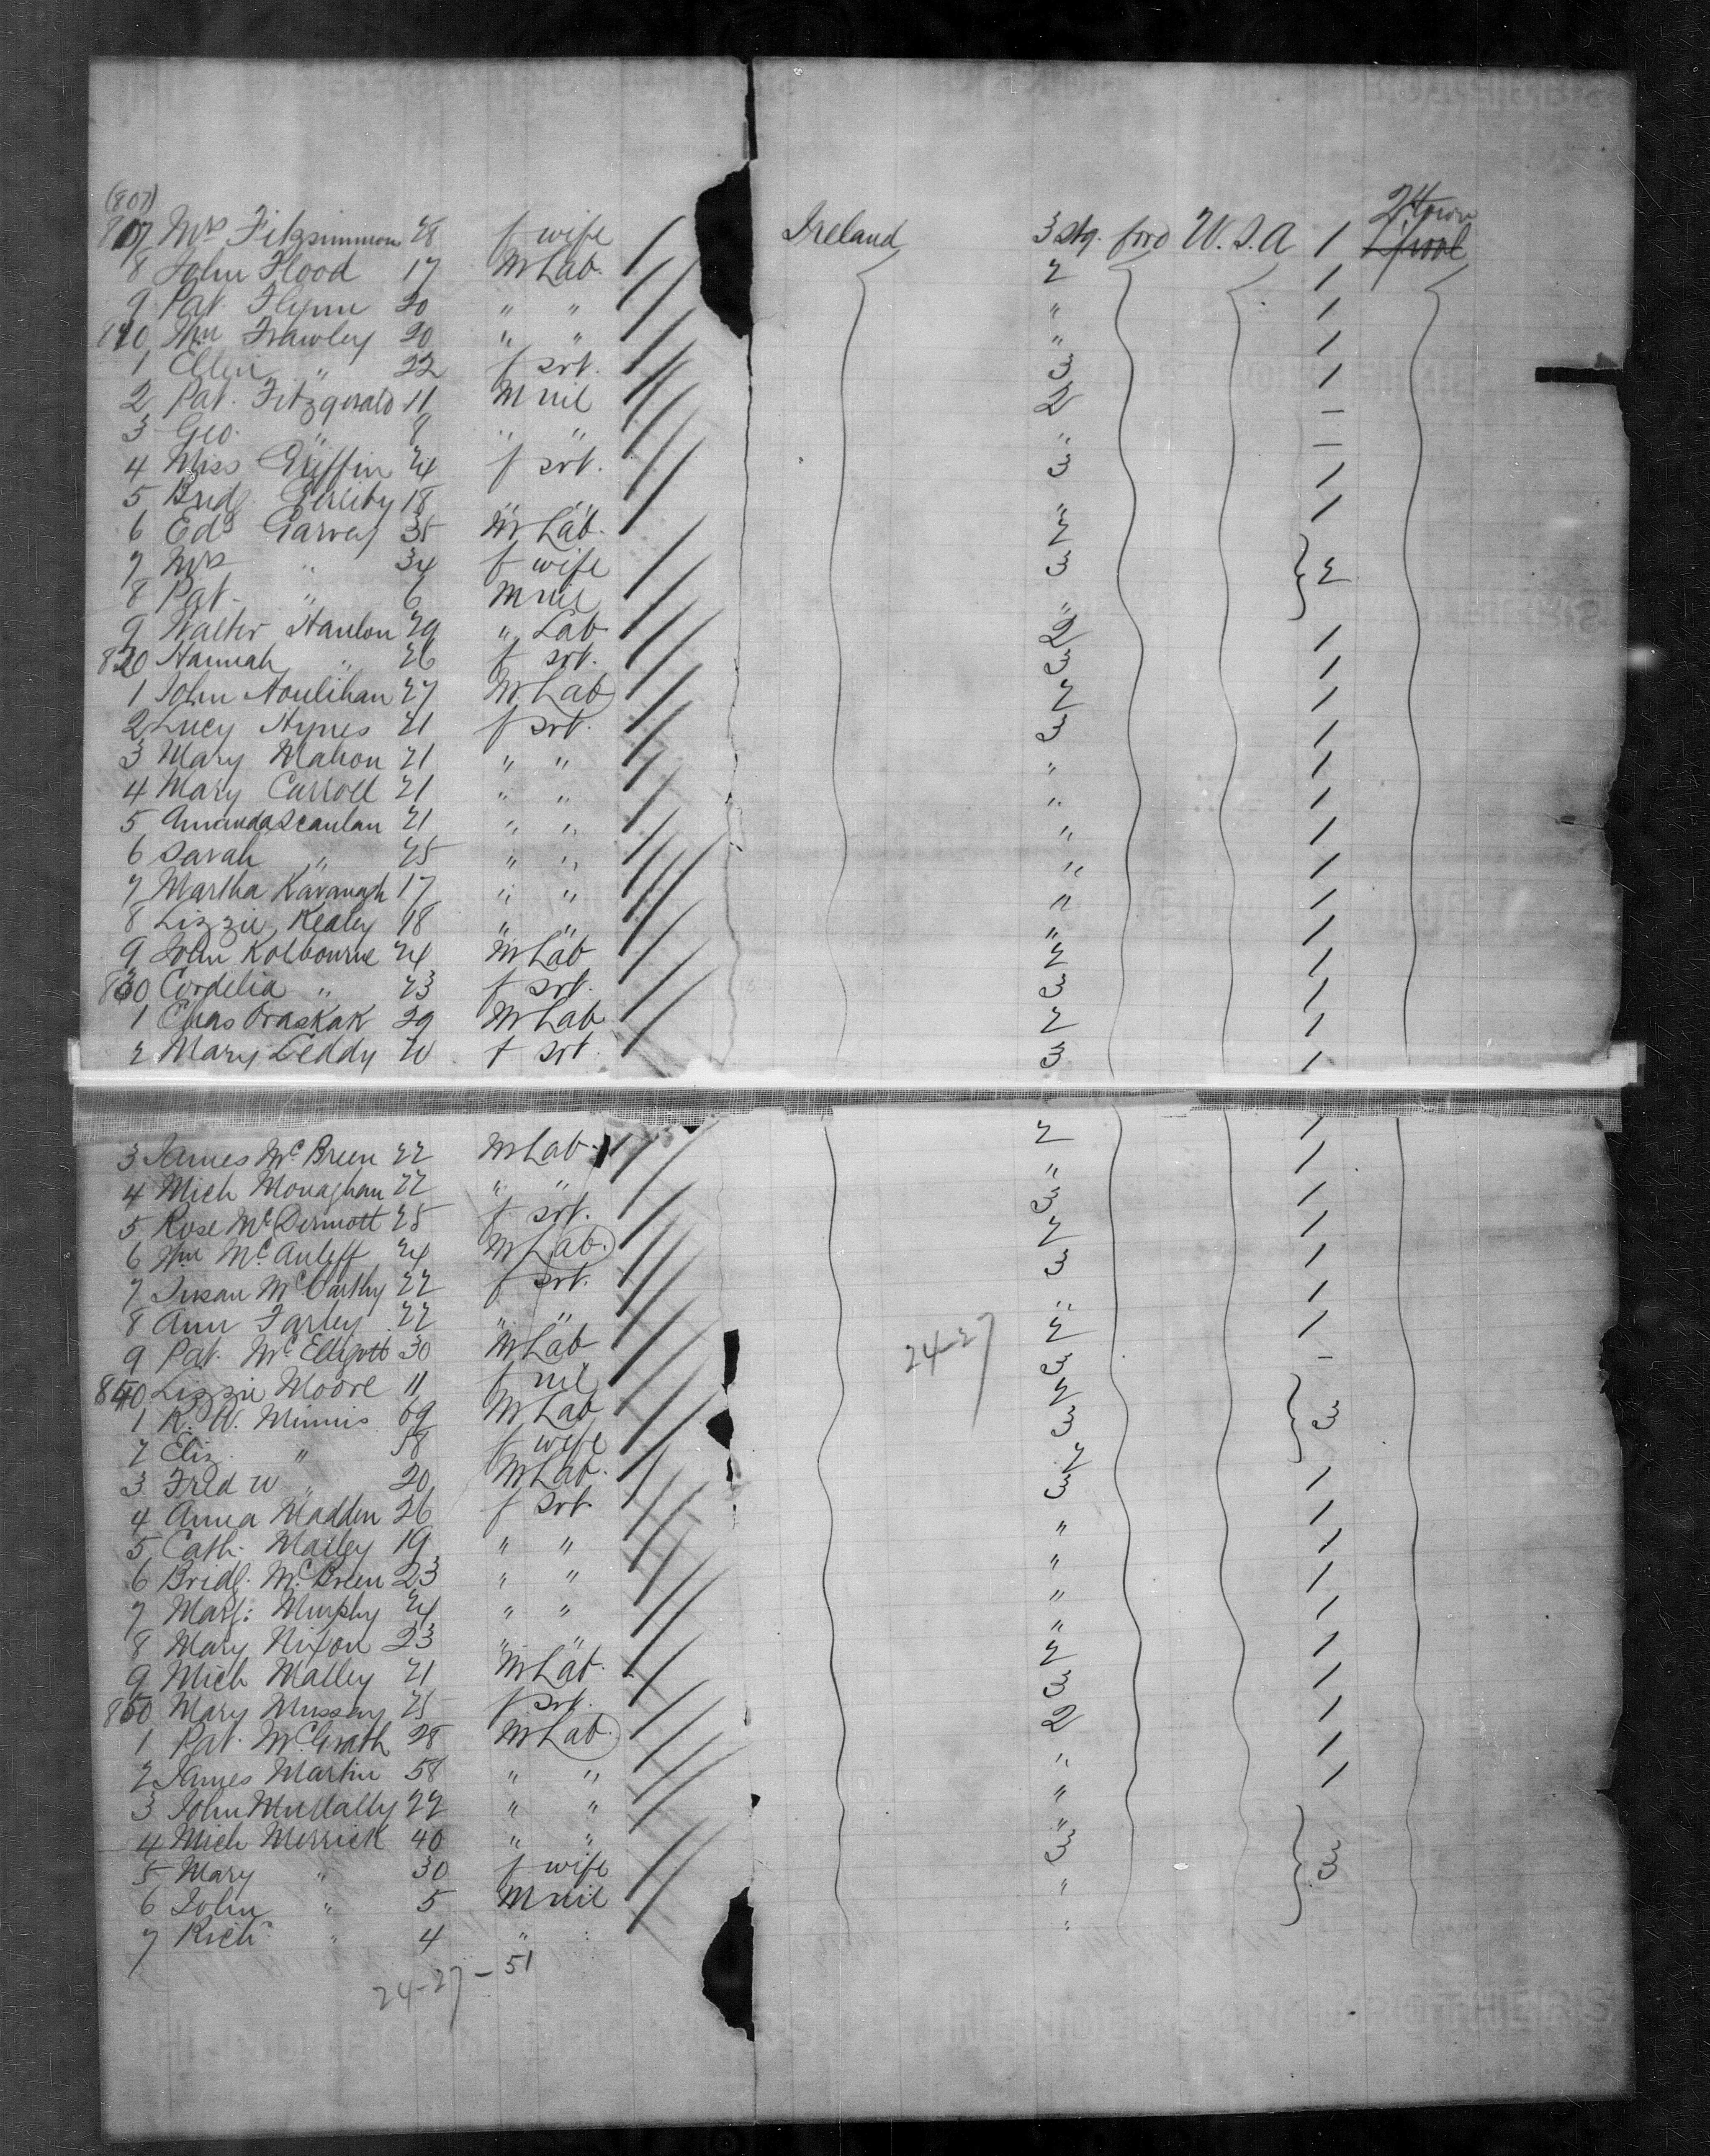 (807)
807 Mrs Fitzsimmon 28 f wife Ireland 3 stg. fwd U.S.A 1 2town L'pool
8 John Flood 17 M Lab. 2 1
9 Pat. Flynn 20 " " " 1
810 Wm Frawley 20 " " " 1
1 Ellen " 22 f srt. 3 1
2 Pat. Fitzgerald 11 M nil 2 1
3 Geo. " 9 " " " 1
4 Miss Griffin 24 f srt. 3 1
5 Bridg. 18 " " " 1
6 Edd Garvey 35 M Lab. 2
7 Mrs " 34 f wife 3 } 2
8 Pat. " 6 M nil "
9 Walter Hanlon 29 " Lab 2 1
820 Hannah " 26 f srt. 3 1
1 John Houlihan 27 M Lab 2 1
2 Lucy Hynes 21 f srt. 3 1
3 Mary Mahon 21 " " " 1
4 Mary Carroll 21 " " " 1
5 Amanda Scanlan 21 " " " 1
6 Sarah " 25 " " " 1
7 Martha Kavanagh 17 " " " 1
8 Lizzie Kealey 18 " " " 1
9 John Kolbourne 24 M Lab 2 1
830 Cordelia " 23 f srt. 3 1
1 Chas Oraskak 29 M Lab 2 1
2 Mary Leddy 20 f srt. 3 1
3 James McBreen 22 M Lab. 2 1
4 Mich Monaghan 22 " " " 1
5 Rose McDermott 25 f srt. 3 1
6 Wm McAuliff 24 M Lab. 2 1
7 Susan McCarthy 22 f srt. 3 1
8 Ann Farley 22 " " " 1
9 Pat. McElligott 30 M Lab 2 1
24-27
840 Lizzie Moore 11 f nil 3 1
1 R. W. Minnis 69 M Lab 2
2 Eliz. " 58 f wife 3 } 3
3 Fred W " 20 M Lab. 2
4 Anna Madden 26 f srt 3 1
5 Cath. Malley 19 " " " 1
6 Bridg. McBreen 23 " " " 1
7 Marg. Murphy 24 " " " 1
8 Mary Nixon 23 " " " 1
9 Mich Malley 21 M Lab. 2 1
850 Mary 25 f srt. 3 1
1 Pat. McGrath 28 M Lab. 2 1
2 James Martin 58 " " " 1
3 John Mullally 22 " " " 1
4 Mich Merrick 40 " " "
5 Mary " 30 f wife 3 } 3
6 John " 5 M nil "
7 Rich " 4 " : "
24-27-51